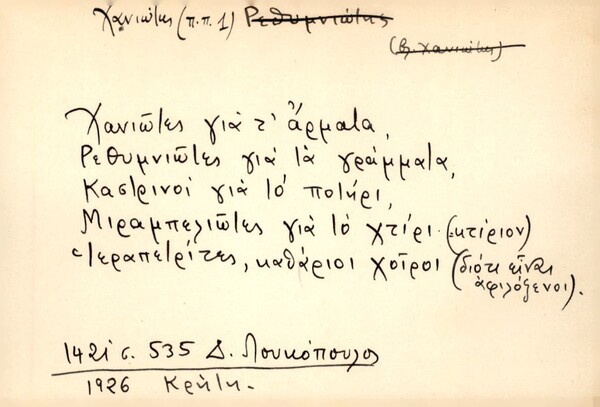 Χανιώτης (π.π. 1) Ρεθυμνιώτης
(βλ. Χανιώτης)
Χανιῶτες γιὰ τ' ἄρματα,
Ρεθυμνιῶτες γιὰ τὰ γράμματα,
Καστρινοί γιὰ τὸ ποτήρι,
Μιραμπελιῶτες γιὰ τὸ χτίρι (κτίριον)
Ἱεραπετρίτες, καθάριοι χοῖροι (διότι εἶναι
ἀφιλόξενοι).
1421 σ. 535 Δ. Λουκόπουλος
1926 Κρήτη.